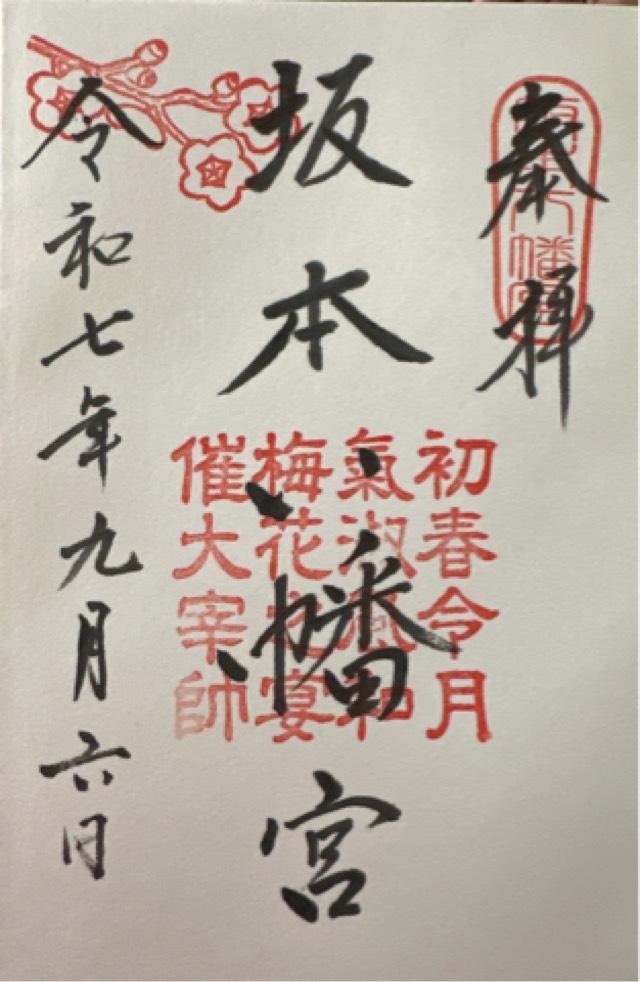 奉拝
坂本八幡宮
初春令月
氣淑風和
梅花之宴
催大宰帥
令和七年九月六日